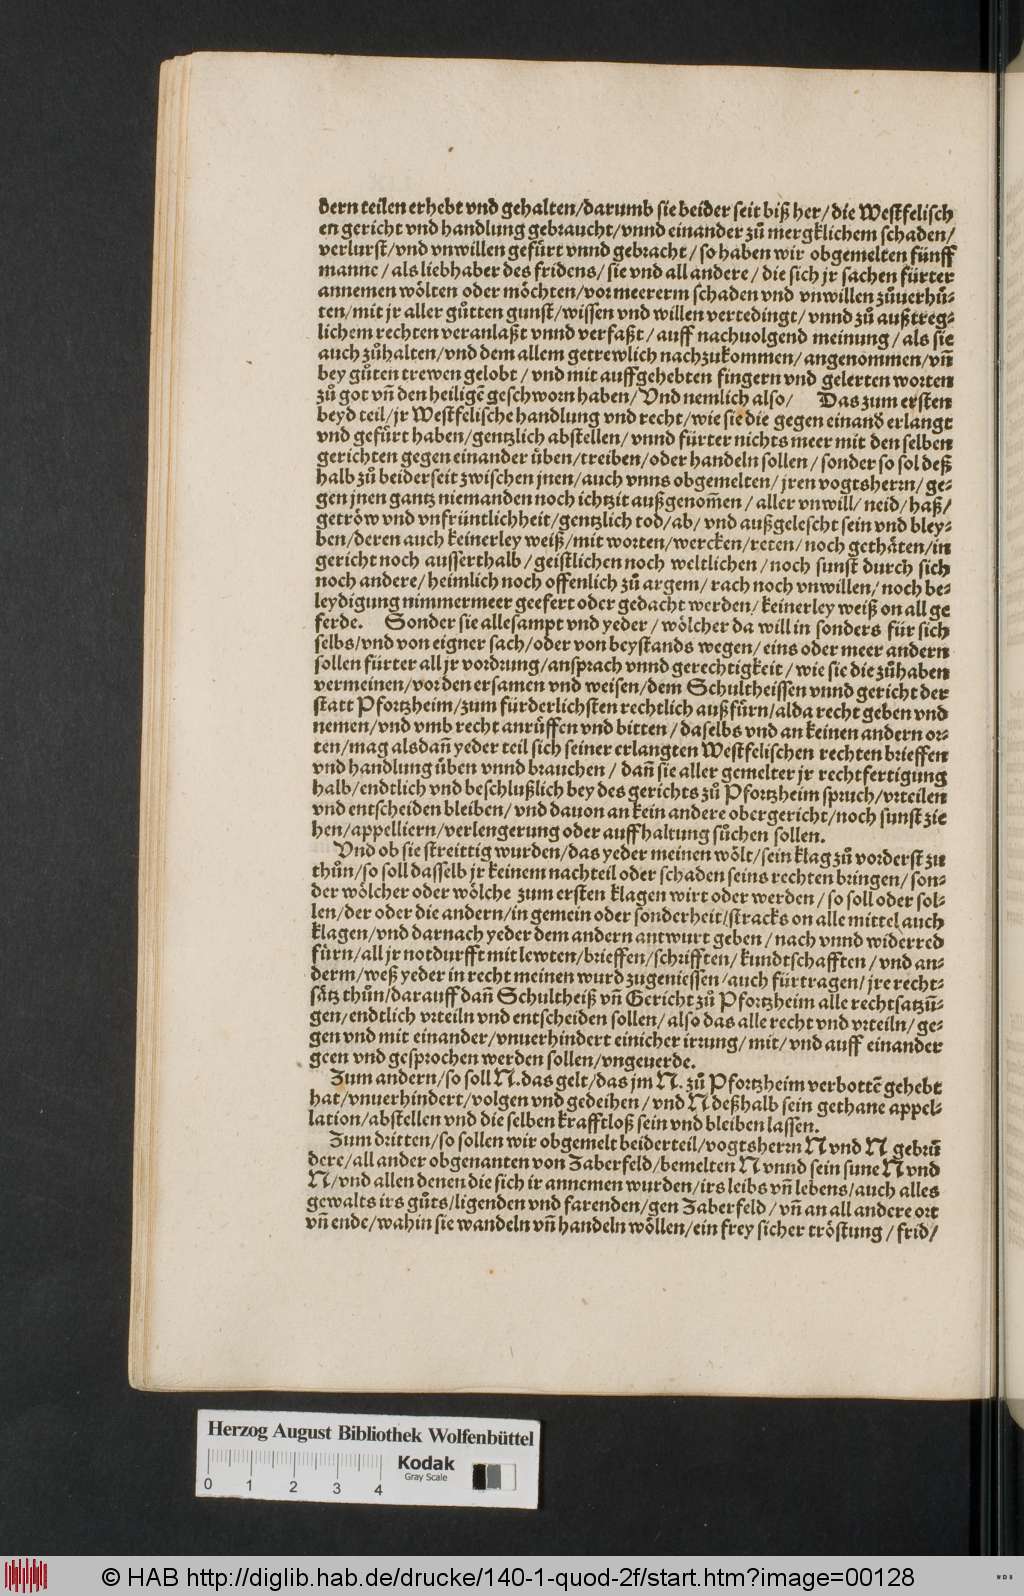 dern teilen erhebt vnd gehalten/darumb sie beider seit biß her/die Westfelisch
en gericht vnd handlung gebraucht/vnnd einander zů mergklichem schaden/
verlurst/vnd vnwillen gefürt vnnd gebracht/so haben wir obgemelten fünff
manne/als liebhaber des fridens/sie vnd all andere/die sich jr sachen fürter
annemen wölten oder möchten/vor meererm schaden vnd vnwillen zůuerhü-
ten/mit jr aller gůtten gunst/wissen vnd willen vertedingt/vnnd zů außtreg-
lichem rechten veranlaßt vnnd verfaßt/auff nachuolgend meinung/als sie
auch zůhalten/vnd dem allem getrewlich nachzukommen/angenommen/vñ
bey gůten trewen gelobt/vnd mit auffgehebten fingern vnd gelerten worten
zů got vñ den heiligẽ geschworn haben/Vnd nemlich also/ Das zum ersten
beyd teil/jr Westfelische handlung vnd recht/wie sie die gegen einand erlangt
vnd gefürt haben/gentzlich abstellen/vnnd fürter nichts meer mit den selben
gerichten gegen einander üben/treiben/oder handeln sollen/sonder so sol deß
halb zů beiderseit zwischen jnen/auch vnns obgemelten/jren vogtsherrn/ge-
gen jnen gantz niemanden noch ichtzit außgenom̃en/aller vnwill/neid/haß/
getröw vnd vnfrüntlichheit/gentzlich tod/ab/vnd außgelescht sein vnd bley-
ben/deren auch keinerley weiß/mit worten/wercken/reten/noch gethäten/in
gericht noch ausserthalb/geistlichen noch weltlichen/noch sunst durch sich
noch andere/heimlich noch offenlich zů argem/rach noch vnwillen/noch be-
leydigung nimmermeer geefert oder gedacht werden/keinerley weiß on all ge
ferde. Sonder sie allesampt vnd yeder/wölcher da will in sonders für sich
selbs/vnd von eigner sach/oder von beystands wegen/eins oder meer andern
sollen fürter all jr vordrung/ansprach vnnd gerechtigkeit/wie sie die zůhaben
vermeinen/vor den ersamen vnd weisen/dem Schultheissen vnnd gericht der
statt Pfortzheim/zum fürderlichsten rechtlich außfürn/alda recht geben vnd
nemen/vnd vmb recht anrüffen vnd bitten/daselbs vnd an keinen andern or-
ten/mag alsdañ yeder teil sich seiner erlangten Westfelischen rechten brieffen
vnd handlung üben vnnd brauchen/dañ sie aller gemelter jr rechtfertigung
halb/endtlich vnd beschlußlich bey des gerichts zů Pfortzheim spruch/vrteilen
vnd entscheiden bleiben/vnd dauon an kein andere obergericht/noch sunst zie
hen/appelliern/verlengerung oder auffhaltung sůchen sollen.
Vnd ob sie streittig wurden/das yeder meinen wölt/sein klag zů vorderst zu
thůn/so soll dasselb jr keinem nachteil oder schaden seins rechten bringen/son-
der wölcher oder wölche zum ersten klagen wirt oder werden/so soll oder sol-
len/der oder die andern/in gemein oder sonderheit/stracks on alle mittel auch
klagen/vnd darnach yeder dem andern antwurt geben/nach vnnd widerred
fürn/all jr notdurfft mit lewten/brieffen/schrifften/kundtschafften/vnd an-
derm/weß yeder in recht meinen wurd zugeniessen/auch fürtragen/jre recht-
sätz thůn/darauff dañ Schultheiß vñ Gericht zů Pfortzheim alle rechtsatzũ-
gen/endtlich vrteiln vnd entscheiden sollen/also das alle recht vnd vrteiln/ge-
gen vnd mit einander/vnuerhindert einicher irrung/mit/vnd auff einander
geen vnd gesprochen werden sollen/vngeuerde.
Zum andern/so soll N.das gelt/das jm N. zů Pfortzheim verbottẽ gehebt
hat/vnuerhindert/volgen vnd gedeihen/vnd N deßhalb sein gethane appel-
lation/abstellen vnd die selben krafftloß sein vnd bleiben lassen.
Zum dritten/so sollen wir obgemelt beiderteil/vogtsherrn N vnd N gebrů
dere/all ander obgenanten von Zaberfeld/bemelten N vnnd sein sune N vnd
N/vnd allen denen die sich ir annemen wurden/irs leibs vñ lebens/auch alles
gewalts irs gůts/ligenden vnd farenden/gen Zaberfeld/vñ an all andere ort
vñ ende/wahin sie wandeln vñ handeln wöllen/ein frey sicher tröstung/frid/
Herzog August Bibliothek Wolfenbüttel
Kodak
Gray Scale
0 1 2 3 4
© HAB http://diglib.hab.de/drucke/140-1-quod-2f/start.htm?image=00128